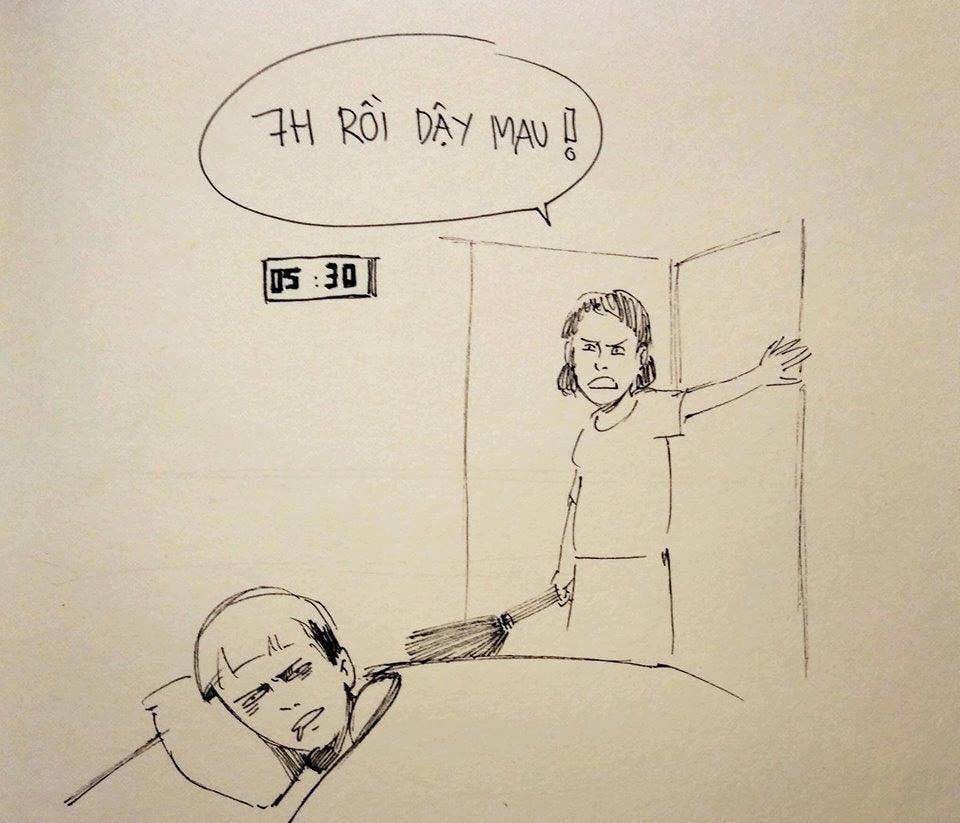 7H RỒI DẬY MAU !
05:30